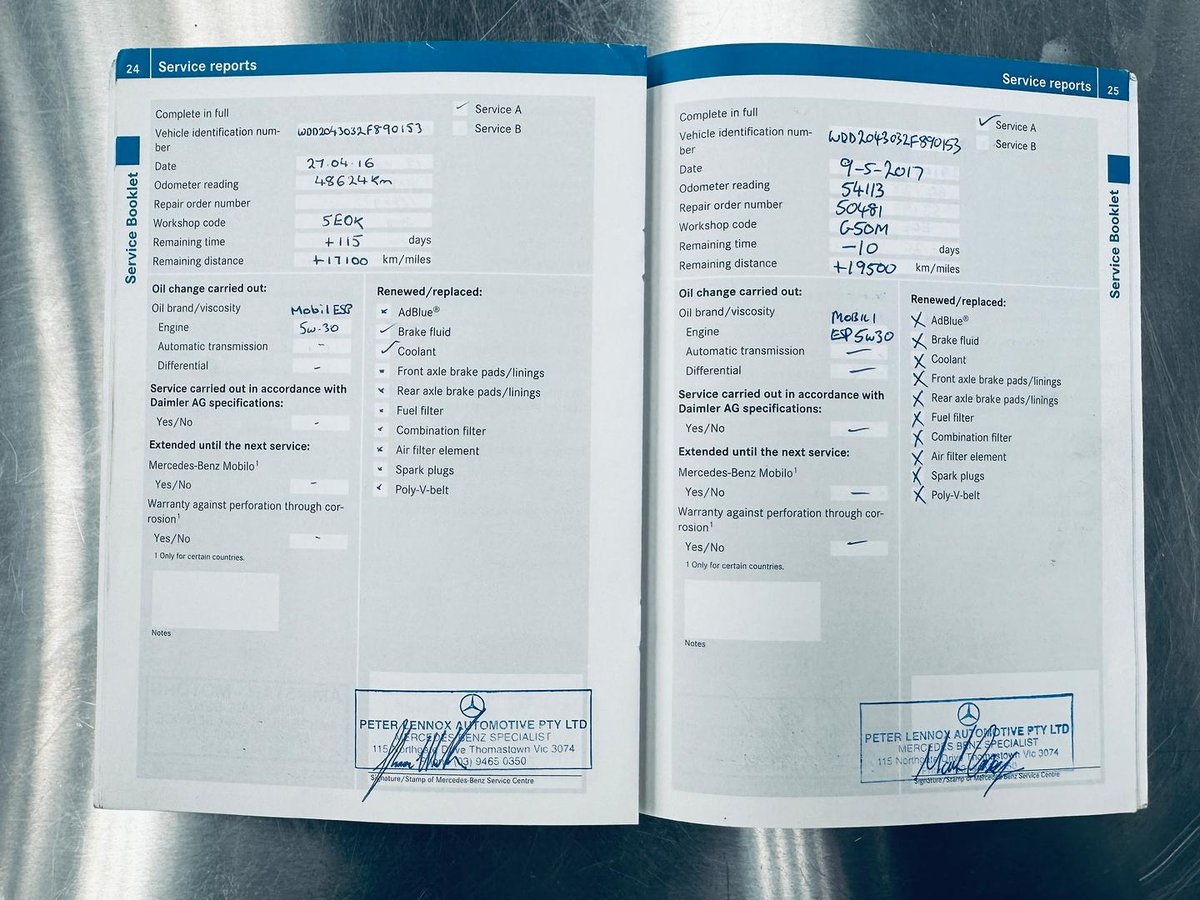 24 Service reports
Complete in full
✓ Service A
Service B
Vehicle identification num-
ber WDD2043032F890153
Date 27.04.16
Odometer reading 48624km
Repair order number
Workshop code 5EOK
Remaining time +115 days
Remaining distance +17100 km/miles
Oil change carried out:
Oil brand/viscosity Mobil ESP
Engine 5w-30
Automatic transmission -
Differential -
Service carried out in accordance with
Daimler AG specifications:
Yes/No -
Extended until the next service:
Mercedes-Benz Mobilo¹
Yes/No -
Warranty against perforation through cor-
rosion¹
Yes/No -
1 Only for certain countries.
Notes
Renewed/replaced:
x AdBlue®
✓ Brake fluid
✓ Coolant
Front axle brake pads/linings
Rear axle brake pads/linings
Fuel filter
Combination filter
Air filter element
Spark plugs
Poly-V-belt
PETER LENNOX AUTOMOTIVE PTY LTD
MERCEDES BENZ SPECIALIST
115 Northgate Drive Thomastown Vic 3074
Phone (03) 9465 0350
Signature/Stamp of Mercedes-Benz Service Centre
Service Booklet
Service reports 25
Complete in full
✓ Service A
Service B
Vehicle identification num-
ber WDD2043032F890153
Date 9-5-2017
Odometer reading 54113
Repair order number 50481
Workshop code G50M
Remaining time -10 days
Remaining distance +19500 km/miles
Oil change carried out:
Oil brand/viscosity MOBIL 1
Engine ESP 5w30
Automatic transmission —
Differential —
Service carried out in accordance with
Daimler AG specifications:
Yes/No —
Extended until the next service:
Mercedes-Benz Mobilo¹
Yes/No —
Warranty against perforation through cor-
rosion¹
Yes/No —
1 Only for certain countries.
Notes
Renewed/replaced:
X AdBlue®
X Brake fluid
X Coolant
X Front axle brake pads/linings
X Rear axle brake pads/linings
X Fuel filter
X Combination filter
X Air filter element
X Spark plugs
X Poly-V-belt
PETER LENNOX AUTOMOTIVE PTY LTD
MERCEDES BENZ SPECIALIST
115 Northgate Drive Thomastown Vic 3074
Signature/Stamp of Mercedes-Benz Service Centre
Service Booklet